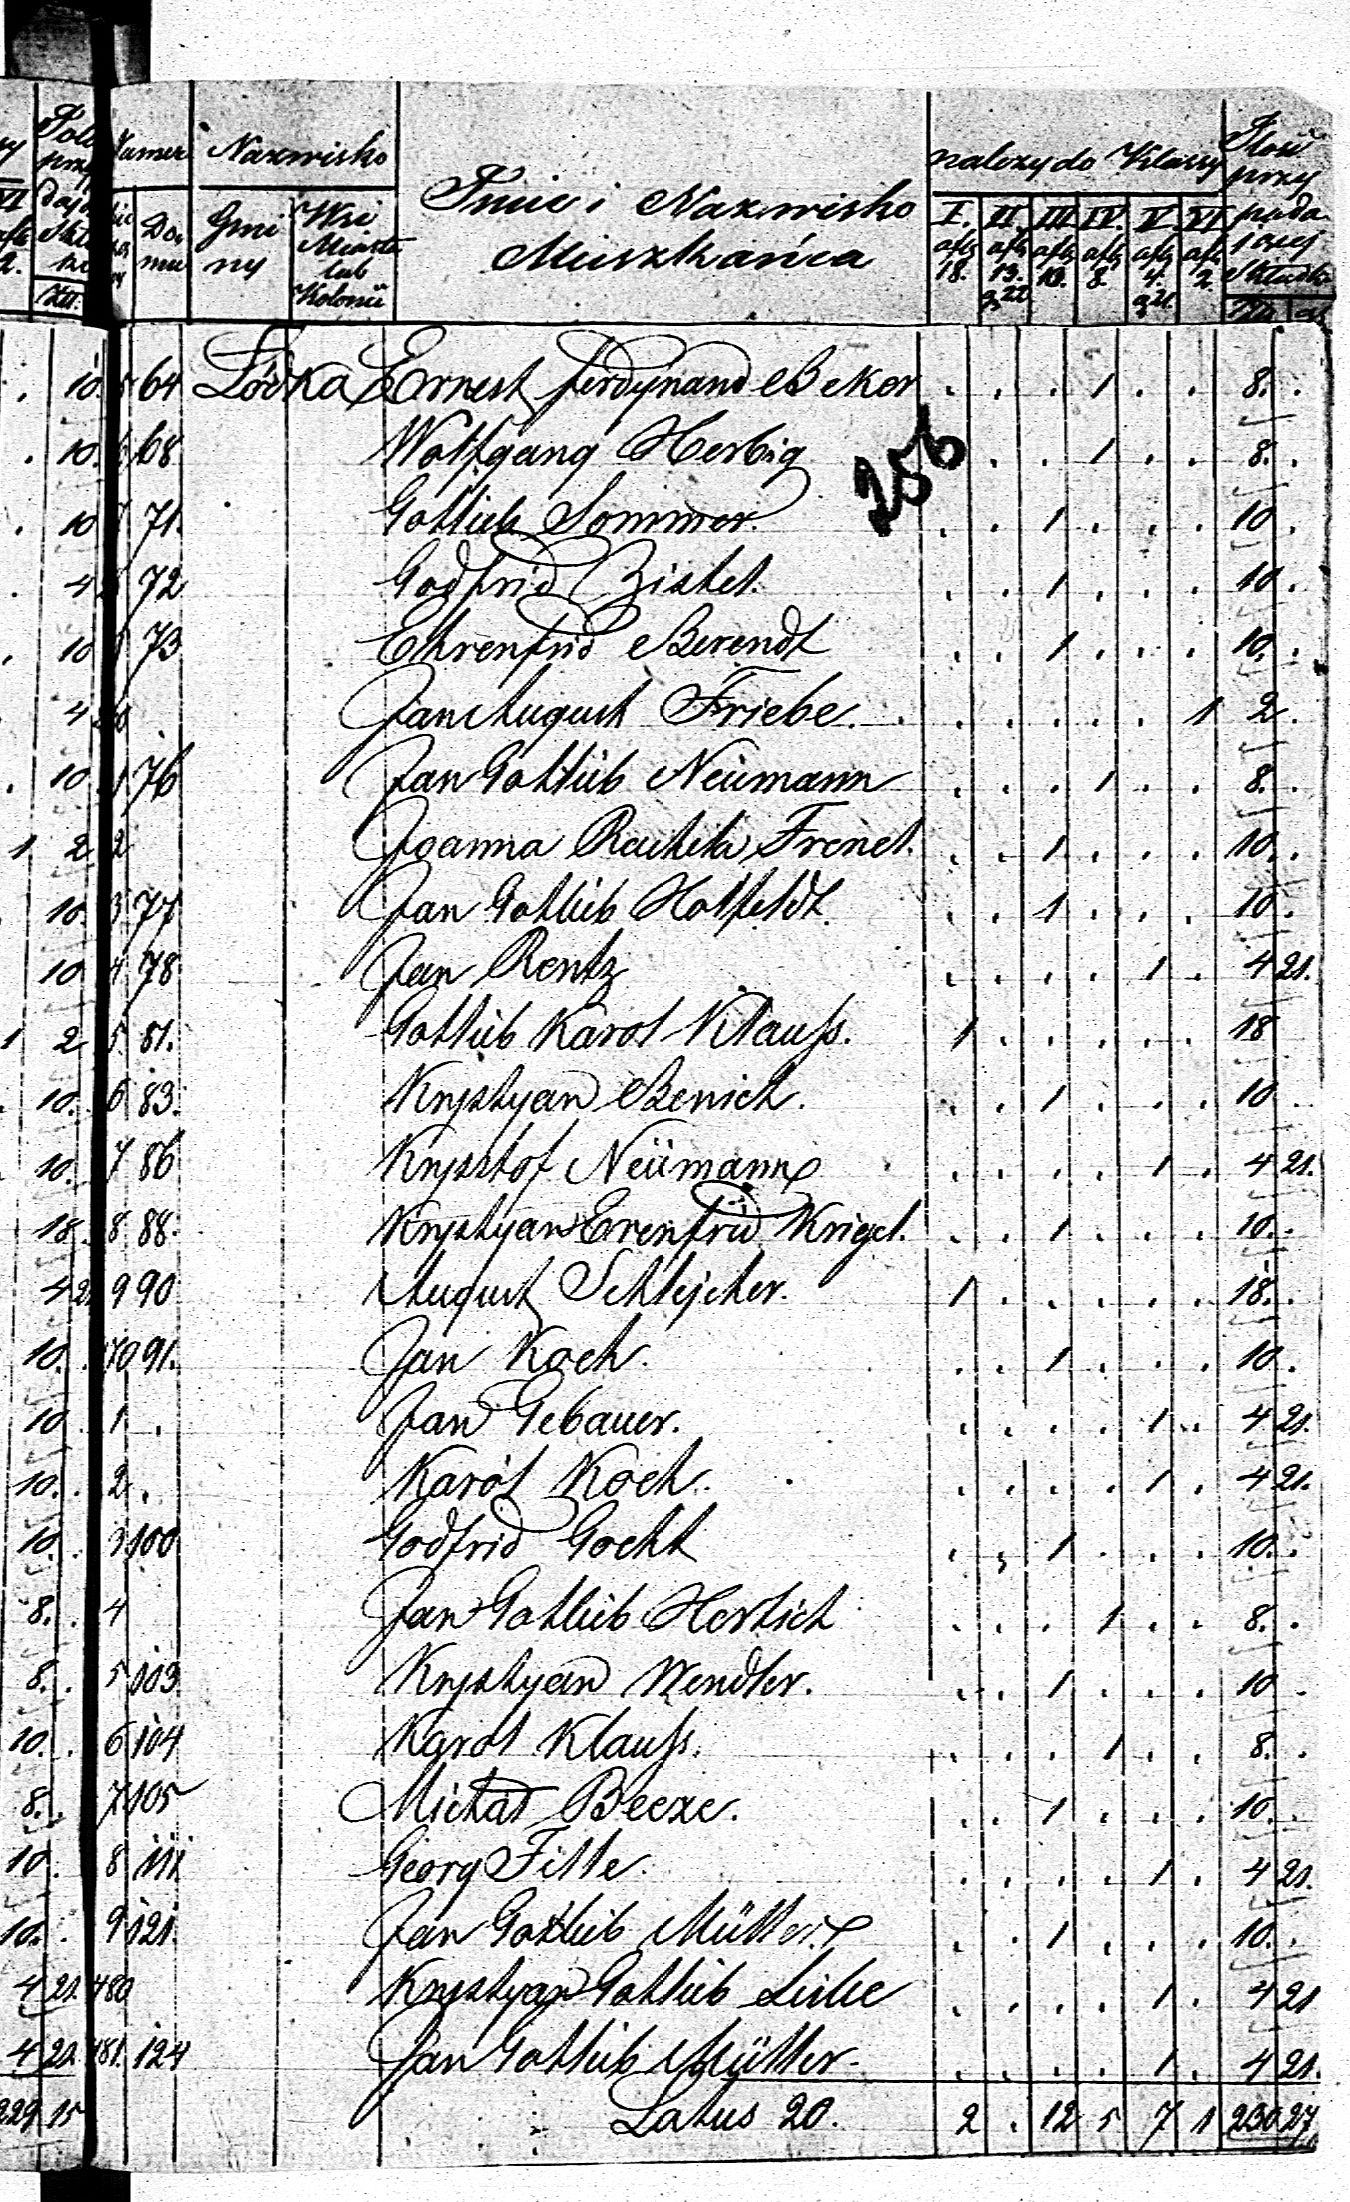 Numer Nazwisko Imie i Nazwisko Mieszkańca należy do Klassy Ilość przypadającej Składki
Domu Gminy Wsi Miasta lub Kolonii I. II. III. IV. V. VI.
złp. 18. złp. 13. g 22 złp. 10. złp. 8. złp. 4. g 21. złp. 2.
10. 5 64 Lódka Ernest Ferdynand Beker . . . 1 . . 8. .
10. 6 68 Wolfgang Herbig . . 1 . . 8. .
256
10 7 71. Gottlieb Sommer. . . 1 . . . 10 .
4 72 Godfrid Bistel. . . 1 . . . 10 .
10 73 Ehrenfrid Berendt . . 1 . . . 10. .
4 Jan August Friebe. . . . . . 1 2 .
10 1 76 Jan Gottlib Neümann . . . 1 . . 8. .
1 2 2 Joanna Frenel. . . 1 . . . 10. .
10. 3 77 Jan Gottlib Holfeldt. . . 1 . . . 10 .
10 4 78 Jan Rentz . . . . 1 . 4 21.
1 2 5. 81. Gottlib Karol Klauss. 1 . . . . . 18
10. 6 83. Krystyan Benich. . . 1 . . . 10 .
10. 7 86 Krysztof Neümann . . . . 1 . 4 21.
18. 8 88. Krystyan Erenfrid Krigel. . . 1 . . . 10. .
4 21 9 90 August Schlejcher. 1 . . . . . 18. .
10. 70 91. Jan Koch. . . 1 . . . 10 .
10 . 1 . Jan Gebauer. . . . . 1 . 4 21.
10. . 2 . Karól Koch. . . . . 1 . 4 21.
10. . 3 100 Godfrid Gocht . . 1 . . . 10. .
8. . 4 Jan Gottlib Hertich . . . 1 . . 8. .
8. . 5 103 Krystyan Wendler. . . 1 . . . 10 .
10. . 6 104 Karól Klauss. . . . 1 . . 8. .
8. . 7 105 Michał Beeze. . . 1 . . . 10. .
10 . 8 111 Georg Fitte. . . . . 1 . 4 21.
10. . 9 121. Jan Gottlib Müller . . 1 . . . 10. .
4 21. 480 Krystyan Gottlib . . . . 1 . 4 21
4 21. 481. 124 Jan Gottlib Müller . . . . 1 . 4 21.
229 15 Latus 20. 2 . 12 5 7 1 230 27